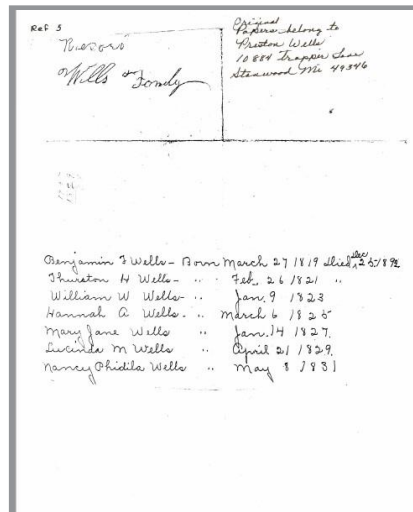 Ref 3
Record
of Wells Family
Original
Papers belong to
Preston Wells
10884 Trapper Lane
Stanwood Mi 49346
Benjamin F Wells - Born March 27 1819 Died Dec 25-1892
Thurston H Wells - " Feb. 26 1821 "
William W Wells - " Jan. 9 1823
Hannah A Wells. " March 6 1825
Mary Jane Wells " Jan. 14 1827.
Lucinda M Wells " April 21 1829.
Nancy Phidila Wells " May 8 1831